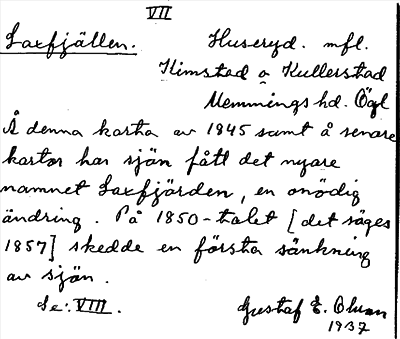 VII
Laxfjällen. Huseryd. mfl.
Kimstad o Kullerstad
Memmings hd. Ögl
Å denna karta av 1845 samt å senare
kartor har sjön fått det nyare
namnet Laxfjärden, en onödig
ändring. På 1850-talet [det säges
1857] skedde en första sänkning
av sjön.
Se: VIII. Gustaf E. Olsson
1937